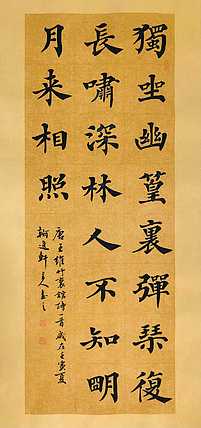 獨坐幽篁裏彈琴復
長嘯深林人不知明
月来相照
唐王維竹裏館詩一首歲在壬寅夏
軒主人書之